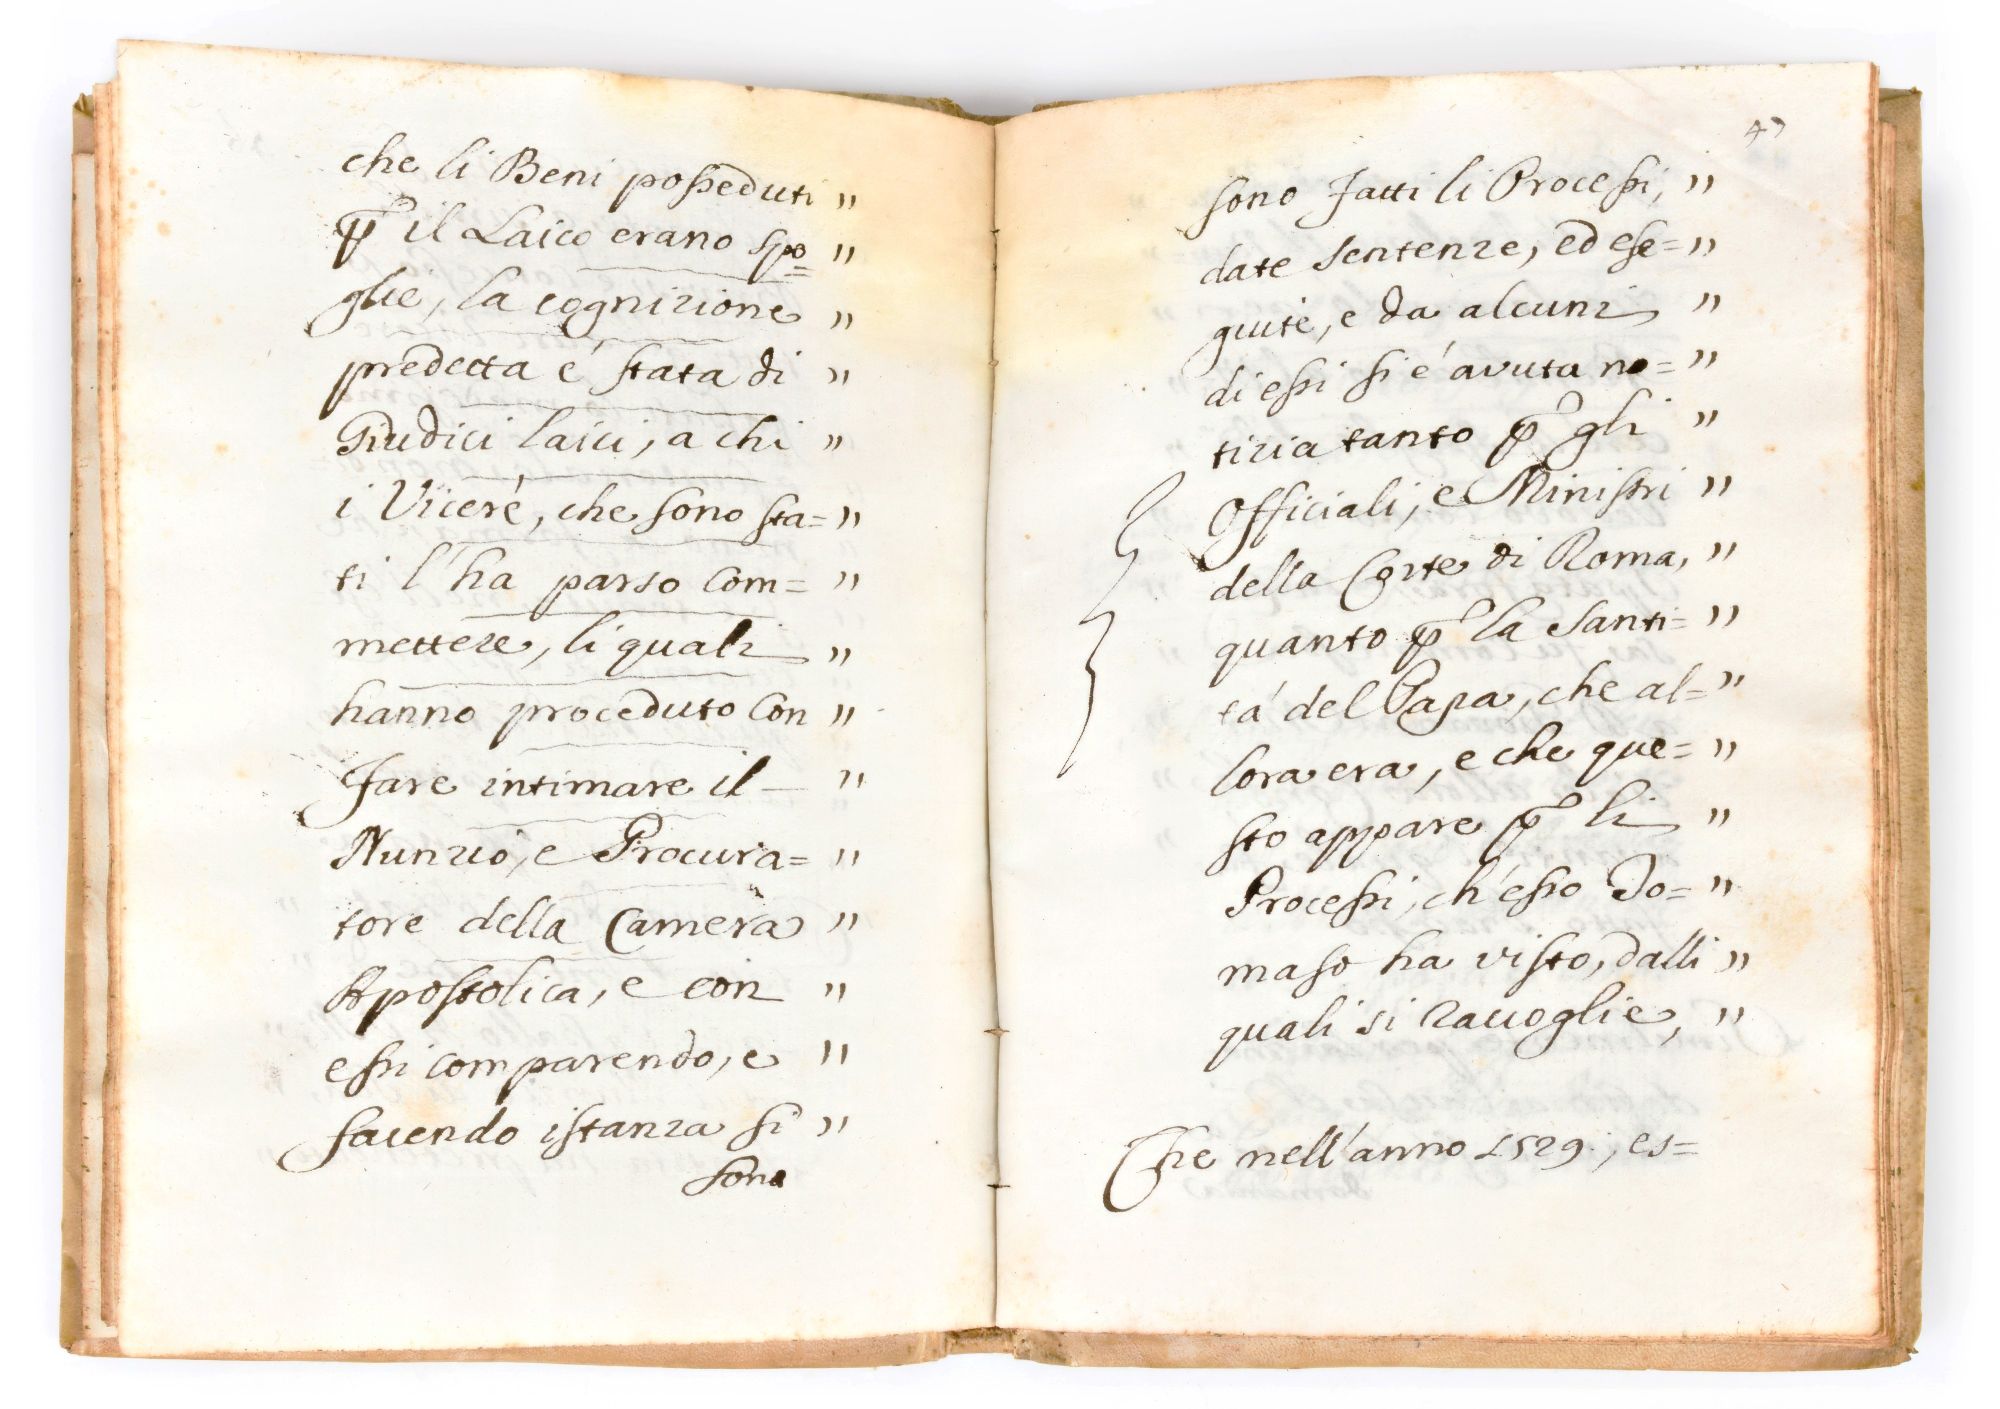 che li Beni posseduti "
p̃ il Laico erano spo= "
glie, la cognizione "
predetta é stata di "
Giudici laici, a chi "
i Viceré, che sono sta= "
ti l'ha parso com= "
mettere, li quali "
hanno proceduto con "
fare intimare il — "
Nunzio, e Procura= "
tore della Camera "
Apostolica, e con "
essi comparendo, e "
facendo istanza si "
sono
47
sono fatti li Processi, "
date sentenze, ed ese= "
guite, e da alcuni "
di essi si é avuta no= "
tizia tanto p̃ gli "
Officiali, e Ministri "
della Corte di Roma, "
quanto p̃ la Santi= "
tá del Papa, che al= "
lora era, e che que= "
sto appare p̃ li "
Processi, ch'esso To= "
maso ha visto, dalli "
quali si raccoglie, "
Che nell'anno 1529., es=